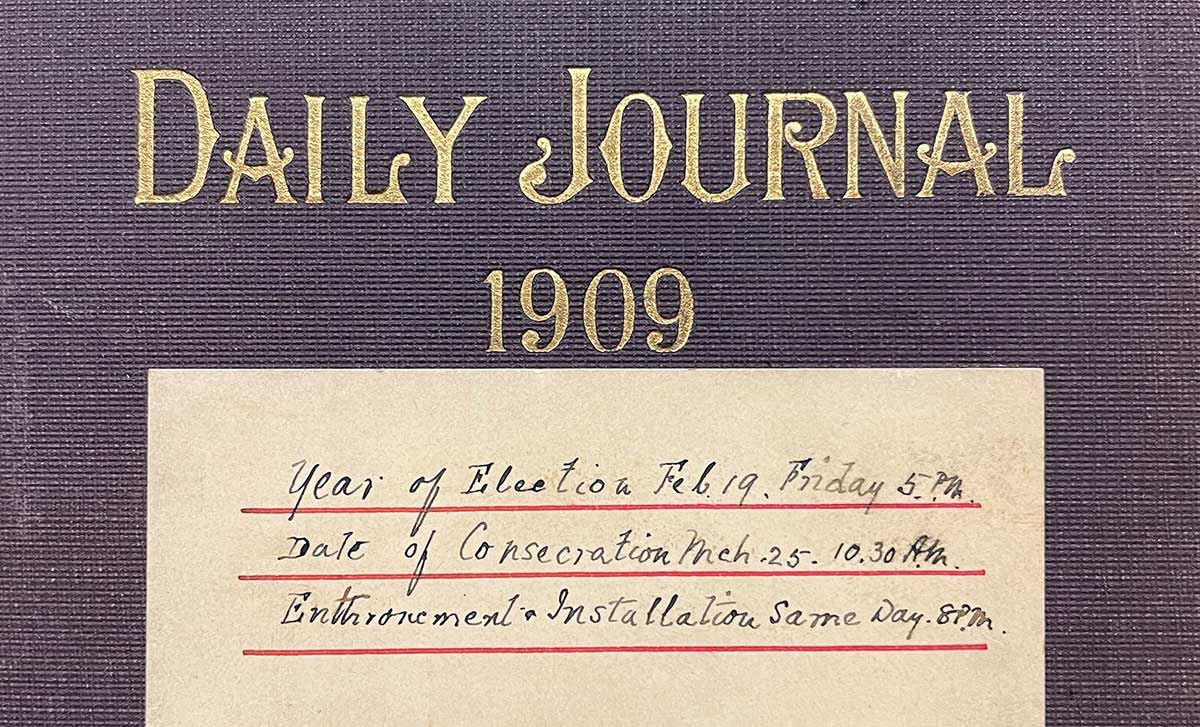 DAILY JOURNAL
1909
Year of Election Feb. 19. Friday 5. P.M.
Date of Consecration Mch. 25. 10.30 A.M.
Enthronement & Installation Same Day. 8 P.M.